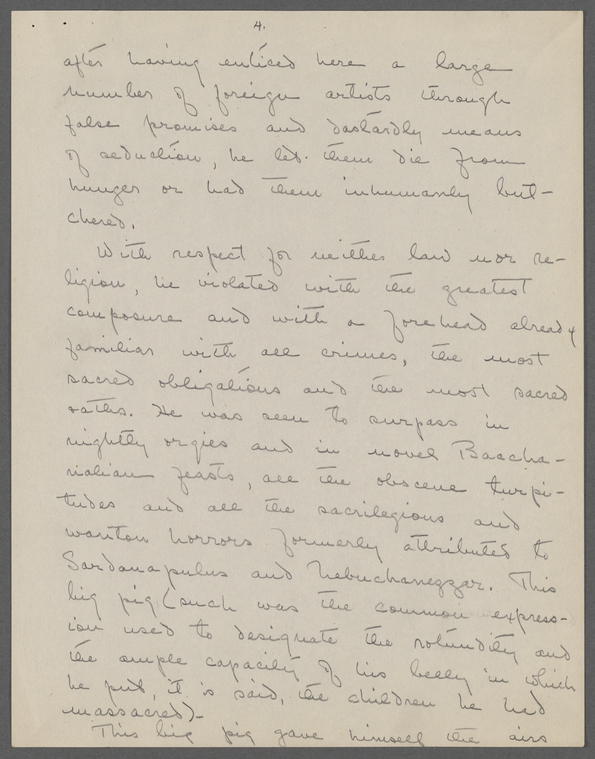 4.
after having enticed here a large
number of foreign artists through
false promises and dastardly means
of seduction, he let them die from
hunger or had them inhumanly but-
chered.
With respect for neither law nor re-
ligion, he violated with the greatest
composure and with a forehead already
familiar with all crimes, the most
sacred obligations and the most sacred
oaths. He was seen to surpass in
nightly orgies and in novel Baccha-
nalian feasts, all the obscene turpi-
tudes and all the sacrilegious and
wanton horrors formerly attributed to
Sardanapulus and Nebuchanegzar. This
big pig (such was the common express-
ion used to designate the rotundity and
the ample capacity of his belly in which
he put, it is said, the children he had
massacred)-
This big pig gave himself the airs